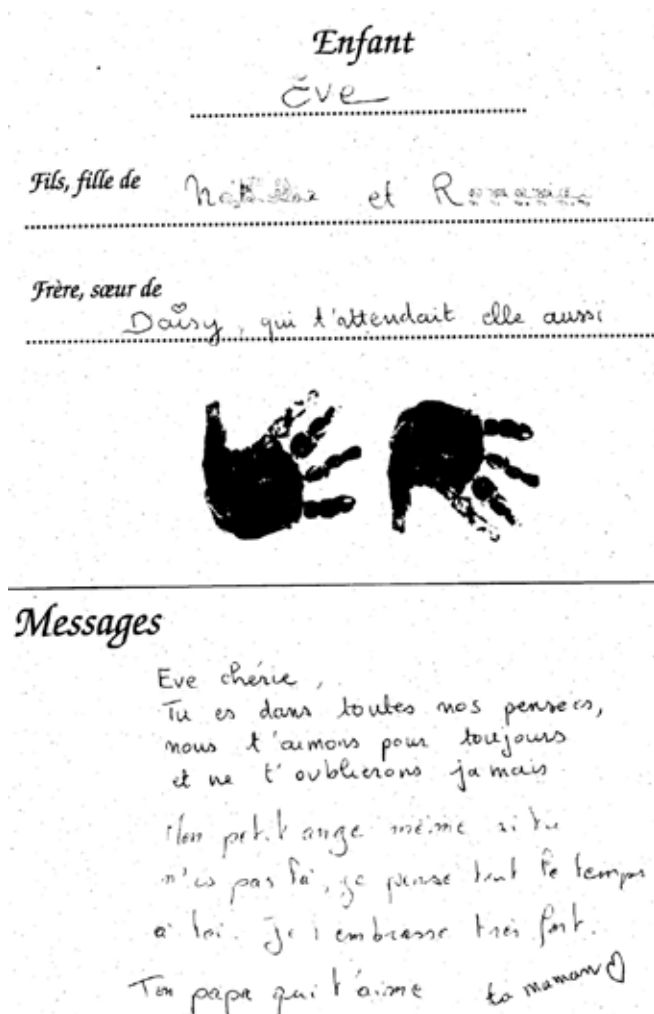 Enfant
Ève
Fils, fille de
et
Frère, sœur de
Daisy, qui t'attendait elle aussi
Messages
Eve chérie,
Tu es dans toutes nos pensées,
nous t'aimons pour toujours
et ne t'oublierons jamais
Mon petit ange même si tu
n'es pas là, je pense tout le temps
à toi. Je t'embrasse très fort.
Ton papa qui t'aime
ta maman